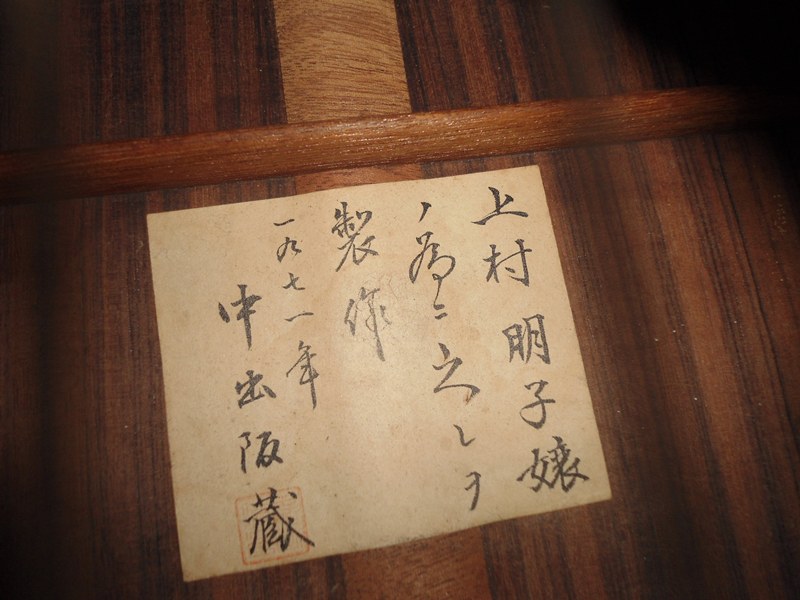 上村明子嬢
ノ為ニ之レヲ
製作
一九七一年
中出阪蔵